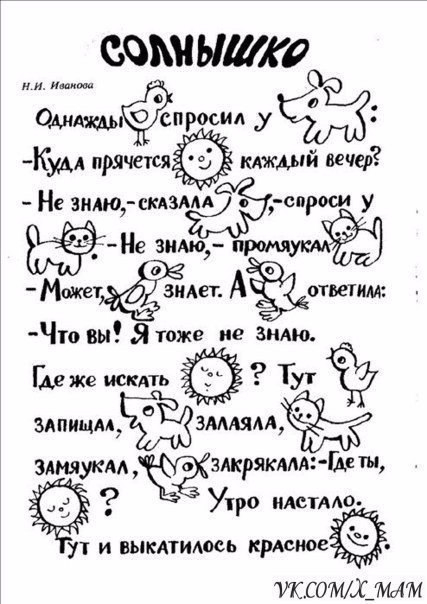 СОЛНЫШКО
Н.И. Иванова
Однажды спросил у :
-Куда прячется каждый вечер?
- Не знаю,- сказала ,-спроси у
. - Не знаю,- промяукал
- Может, знает. А ответила:
-Что вы! Я тоже не знаю.
Где же искать ? Тут
запищал, залаяла,
замяукал, закрякала:-Где ты,
? Утро настало.
Тут и выкатилось красное .
VK.COM/X_MAM